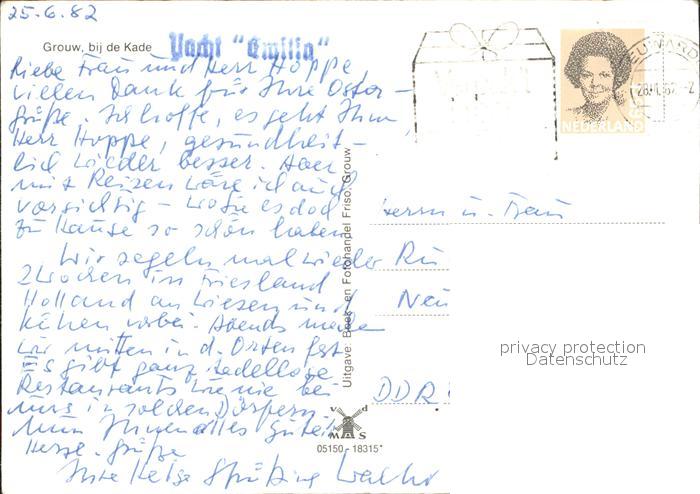 25.6.82
Grouw, bij de Kade
Yacht "Emilia"
Liebe Frau und Herr Hoppe
vielen Dank für Ihre Oster-
grüße. Ich hoffe, es geht Ihnen,
Herr Hoppe, gesundheit-
lich wieder besser. Aber
mit Reisen wäre ich auch
vorsichtig – wo Sie es doch
zu Hause so schön haben.
Wir segeln mal wieder
2 Wochen in Friesland
Holland an Wiesen und
Kühen vorbei. Abends machen
wir mitten in d. Orten fest
Es gibt ganz tadellose
Restaurants wie nie bei
uns in solchen Dörfern.
Nun Ihnen alles Gute
Herzl. Grüße
Ihre Helga
NEDERLAND
Herrn u. Frau
Ru
Neu
DDR
Uitgave: Boek- en Fotohandel Friso, Grouw
v d
M S
05150 - 18315*
privacy protection
Datenschutz